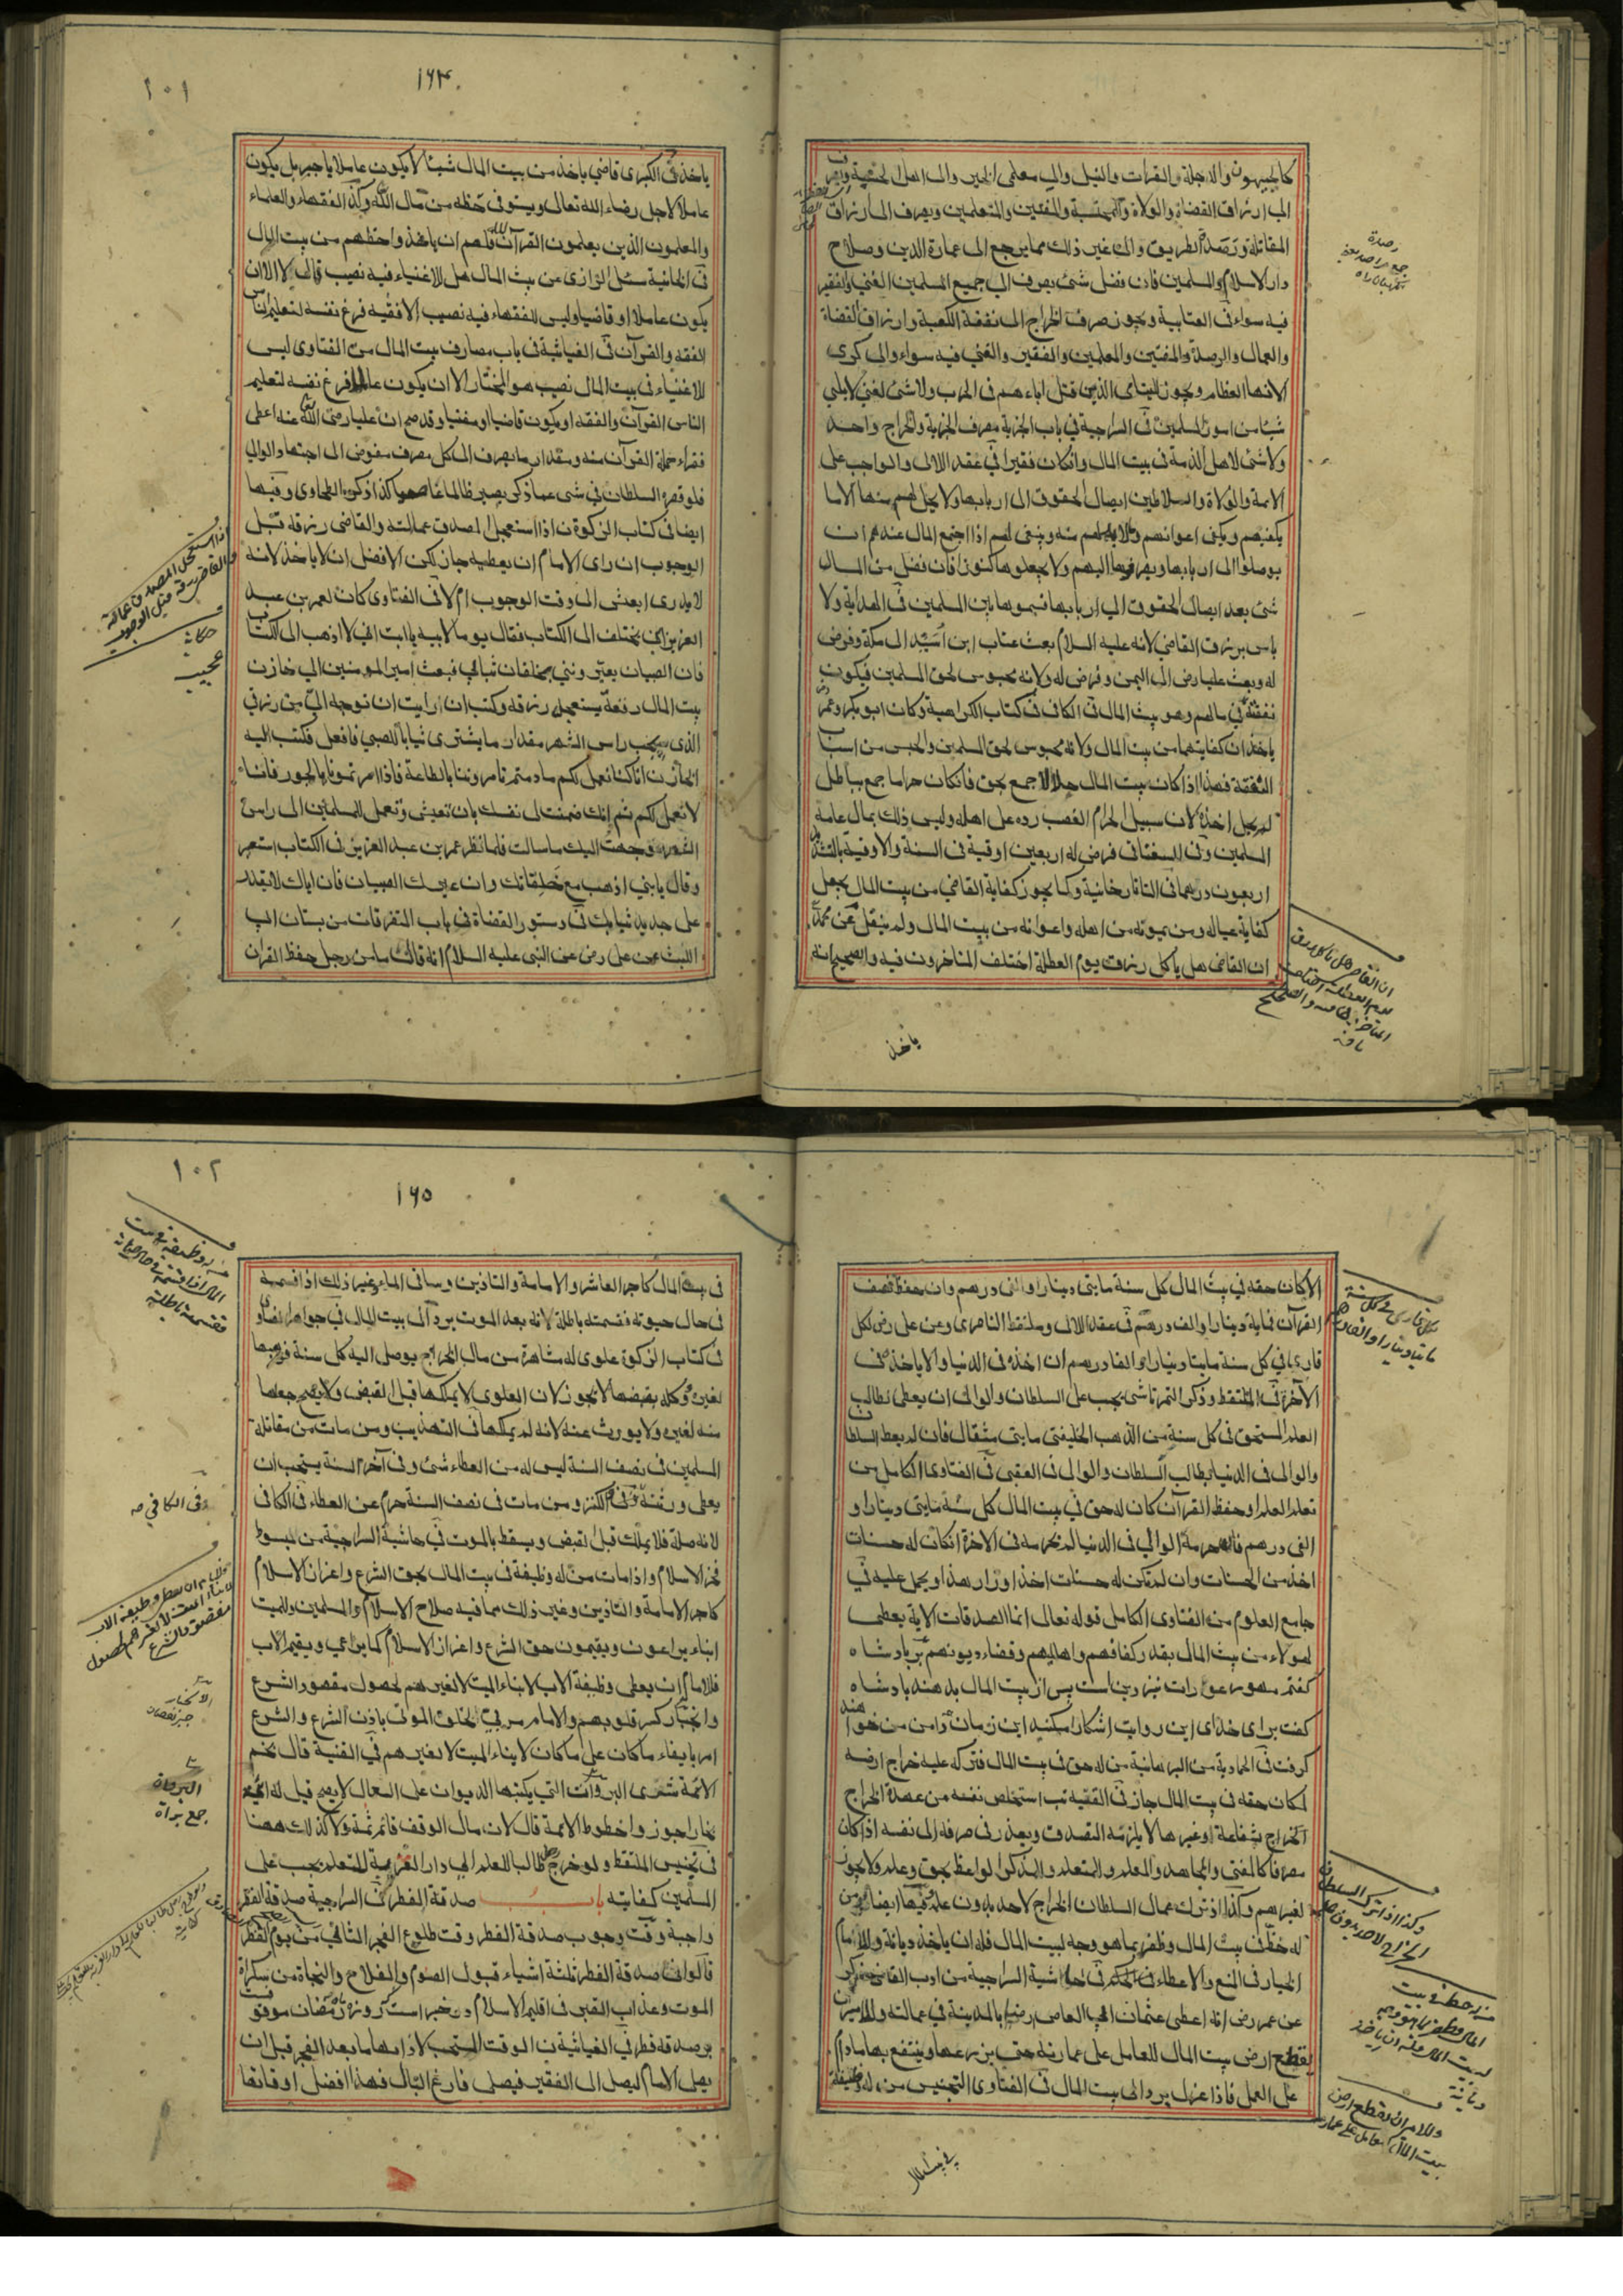 كالجيهون والدجلة والفرات والنيل والى معلمى الخير والى اهل الحسبة ويصرف
الى ارزاق القضاة والولاة والمحتسبة والمفتين والمتعلمين ويصرف الى ارزاق
المقاتلة ورصد الطريق والى غير ذلك مما يرجع الى عمارة الدين وصلاح
دار الاسلام والمسلمين فان فضل شئ يصرف الى جميع المسلمين الغنى والفقير
فيه سواء فى العتابية ويجوز صرف الخراج الى نفقة الكعبة وارزاق القضاة
والعمال والرصدة والمفتين والمعلمين والفقير والغنى فيه سواء والى كرى
الانهار العظام ويجوز لليتامى الذين قتل اباءهم فى الحرب ولا شئ لغنى لا يلى
شيئا من امور المسلمين فى السراجية فى باب الجزية مصرف الجزية والخراج واحد
ولا شئ لاهل الذمة فى بيت المال وان كان فقيرا فى عقد اللالى والواجب على
الائمة والولاة والسلاطين ايصال الحقوق الى اربابها ولا يحل لهم منها الا ما
يكفيهم ويكفى اعوانهم منه وينبغى لهم اذا اجتمع المال عندهم ان
يوصلوا الى اربابها ويصرفها اليهم ولا يجعلوها كنوزا فان فضل من المال
شئ بعد ايصال الحقوق الى اربابها قسموها بين المسلمين فى الهداية ولا
باس برزق القاضى لانه عليه السلام بعث عتاب ابن اسيد الى مكة وفرض
له وبعث عليا رض الى اليمن وفرض له ولانه محبوس لحق المسلمين فيكون
نفقته فى مالهم وهو بيت المال فى الكافى فى كتاب الكراهية وكان ابو بكر وعمر
ياخذان كفايتهما من بيت المال ولانه محبوس لحق المسلمين والحبس من اسباب
النفقة فهذا اذا كان بيت المال حلالا جمع بحق فان كان حراما جمع بباطل
لم يحل اخذه لان سبيل الحرام الغصب رده على اهله وليس ذلك بمال عامة
المسلمين وفى السغناقى فرض له اربعين اوقية فى السنة والاوقية بالتشديد
اربعون درهما فى التاتارخانية وكما يجوز كفاية القاضى من بيت المال يجعل
كفاية عياله ومن يمونه من اهله واعوانه من بيت المال ولم ينقل عن محمد
ان القاضى هل ياكل رزق يوم العطلة اختلف المتاخرون فيه والصحيح انه
ياخذ
رصدة
جمع
ان القاضى هل ياكل رزق
يوم العطلة اختلف
المتاخرون فيه والصحيح
۱۰۱
۱۶۴
ياخذ فى الكبرى قاضى ياخذ من بيت المال شيئا لا يكون عاملا باجر بل يكون
عاملا لاجل رضاء الله تعالى ويستوفى حظه من مال الله وكذا الفقهاء والعلماء
والمعلمون الذين يعلمون القرآن فلهم ان ياخذوا حظهم من بيت المال
فى الخانية سئل الرازى عن بيت المال هل للاغنياء فيه نصيب قال لا الا ان
يكون عاملا او قاضيا وليس للفقهاء فيه نصيب الا فقيه فرغ نفسه لتعليم الناس
الفقه والقرآن فى الغياثية فى باب مصارف بيت المال من الفتاوى ليس
للاغنياء فى بيت المال نصيب هو المختار الا ان يكون عالما فرغ نفسه لتعليم
الناس القرآن والفقه او يكون قاضيا او مفتيا وقد صح ان عليا رضى الله عنه اعطى
فقراء حملة القرآن منه ومقدار ما يصرف الى كل مصرف مفوض الى اجتهاد الوالى
فلو قصر السلطان فى شئ عما ذكر يصير ظالما كذا ذكره الطحاوى وفيها
ايضا فى كتاب الزكوة ن اذا استعجل المصدق عمالته والقاضى رزقه قبل
الوجوب ان راى الامام ان يعطيه جاز لكن الافضل ان لا ياخذ لانه
لا يدرى ايعش الى وقت الوجوب ام لا فى الفتاوى كان لعمر بن عبد
العزيز ابن يختلف الى الكتاب فقال يوما لابيه يا ابت انى لا اذهب الى الكتاب
فان الصبيان يعيروننى بخلقان ثيابى فبعث امير المومنين الى خازن
بيت المال رقعة يستعجل رزقه وكتب ان رايت ان توجه الى من رزقى
الذى يجب راس الشهر مقدار ما يشترى ثيابا للصبى فافعل فكتب اليه
الخازن انا كنا نعمل لكم ما دمتم تامروننا بالطاعة فاذا امرتمونا بالجور فانا
لا نعمل لكم ثم انك ضمنت لى نفسك بان تعيش وتعمل للمسلمين الى راس
الشهر وجهت اليك ما سالت فلما نظر عمر بن عبد العزيز فى الكتاب استعبر
وقال يا بنى اذهب مع خلقانك وان عيرك الصبيان فان اباك لا يقدر
على جديد ثيابك فى دستور القضاة فى باب المتفرقات من بستان ابى
الليث عن على رض عن النبى عليه السلام انه قال ما من رجل حفظ القران
اذا استعجل المصدق عمالته
والقاضى رزقه قبل الوجوب
حكايت
عجيب
الا كان حقه فى بيت المال كل سنة مايتى دينار او الفى درهم وان حفظ نصف
القرآن فماية دينار او الف درهم فى عقد اللالى وملتقط الناصرى وعن على رض لكل
قارى فى كل سنة مايتا دينار او الفا درهم ان اخذه فى الدنيا والا ياخذه فى
الآخرة فى الملتقط وذكر التمرتاشى يجب على السلطان والوالى ان يعطى لطالب
العلم المستحق فى كل سنة من الذهب الخليفتى مايتى مثقال فان لم يعط السلطان
والوالى فى الدنيا يطالب السلطان والوالى فى العقبى فى الفتاوى الكامل من
تعلم العلم او حفظ القرآن كان له حق فى بيت المال كل سنة مايتى دينار او
الفى درهم فان حرمه الوالى فى الدنيا لم يحرمه فى الاخرة ان كان له حسنات
اخذ من الحسنات وان لم تكن له حسنات اخذ اوزار هذا ويحمل عليه فى
جامع العلوم من الفتاوى الكامل قوله تعالى انما الصدقات الاية يعطى
لهولاء من بيت المال بقدر كفافهم واهاليهم وقضاء ديونهم بر بادشاه
كفتم مهور عورات نيز دين است پس از بيت المال بدهند بادشاه
كفت براى خداى اين روايت اشكارا مكنيد اين زمان زنان دامن من خواهند
كرفت فى الحمادية من البرهانية من له حق فى بيت المال فترك عليه خراج ارضه
لمكان حقه فى بيت المال جاز فى القنية نب استخلص نفسه من عهدة الخراج
الخراج بشفاعة او غيرها لا يلزمه التصدق ويعذر فى صرفه الى نفسه اذا كان
مصرفا كالمفتى والمجاهد والمعلم والمتعلم والمذكر الواعظ بحق وعلم ولا يجوز
لغيرهم وكذا اذا ترك عمال السلطان الخراج لاحد بدون علمه فيها ايضا من
له حظ فى بيت المال وظفر بما هو وجه لبيت المال فله ان ياخذ ديانة وللامام
الخيار فى المنع والاعطاء فى الحكم فى حاشية السراجية من ادب القاضى ذكر
عن عمر رض انه اعطى عثمان ابى العاص ارضا بالمدينة فى عمالته وللامير ان
يقطع ارض بيت المال للعامل على عمارته حتى يزرعها وينتفع بها ما دام
على العمل فاذا عزل يرد الى بيت المال فى الفتاوى التجنيس من له وظيفة
فى بيت المال
لكل قارى فى كل سنة
مايتا دينار او الفا درهم
وكذا اذا ترك السلطان
الخراج لاحد بدون علمه
من له حظ فى بيت
المال وظفر بما هو وجه
لبيت المال فله ان ياخذ
ديانة
وللامير ان يقطع ارض
بيت المال للعامل على عمارته
۱۰۲
۱۶۵
فى بيت المال كاجر العاشر والامامة والتاذين وساقى الماء وغير ذلك اذا قسمه
فى حال حيوته فقسمته باطلة لانه بعد الموت يرد الى بيت المال فى جواهر الفتاوى
فى كتاب الزكوة علوى له مشاهرة من مال الخراج يوصل اليه كل سنة فوهبها
لغيره وكله بقبضها لا تجوز لان العلوى لا يملكها قبل القبض ولا يصح جعلها
منه لغيره ولا يورث عنه لانه لم يملكها فى التهذيب ومن مات من مقاتلة
المسلمين فى نصف السنة ليس له من العطاء شئ وفى آخر السنة يستحب ان
يعطى ورثته فى الكنز ومن مات فى نصف السنة حرم عن العطاء فى الكافى
لانه صلة فلا يملك قبل القبض ويسقط بالموت فى حاشية السراجية من مبسوط
فخر الاسلام واذا مات من له وظيفة فى بيت المال بحق الشرع واعزاز الاسلام
كاجر الامامة والتاذين وغير ذلك مما فيه صلاح الاسلام والمسلمين وللميت
ابناء يراعون ويقيمون حق الشرع واعزاز الاسلام كما يراعى ويقيم الاب
فللامام ان يعطى وظيفة الاب لابناء الميت لا لغيرهم لحصول مقصود الشرع
وانجبار كسر قلوبهم والامام مربى لخلق الموتى باذن الشرع والشرع
امر بابقاء ما كان على ما كان لابناء الميت لا لغيرهم فى القنية قال نجم
الائمة شرى البروات التى يكتبها الديوان على العمال لا يصح قيل له ائمة
بخارا جوزوا خطوط الائمة قال لان مال الوقف قائم ثمة ولا كذلك ههنا
فى تجنيس الملتقط ولو خرج طالب العلم الى دار الغربة للتعلم يجب على
المسلمين كفايته باب صدقة الفطر فى السراجية صدقة الفطر
واجبة وقت وجوب صدقة الفطر وقت طلوع الفجر الثانى من يوم الفطر
قالوا فى صدقة الفطر ثلثة اشياء قبول الصوم والفلاح والنجاة من سكرات
الموت وعذاب القبر فى اقليم الاسلام در خبر است كه روزه رمضان موقوفست
بر صدقه فطر فى الغياثية ن الوقت المستحب لادائها ما بعد الفجر قبل ان
يصلى الامام ليصل الى الفقير فيصلى فارغ البال فهذا افضل اوقاتها
من له وظيفة فى بيت
المال اذا قسمه فى حال حياته
فقسمته باطلة
فى الكافى
البروات
جمع براة